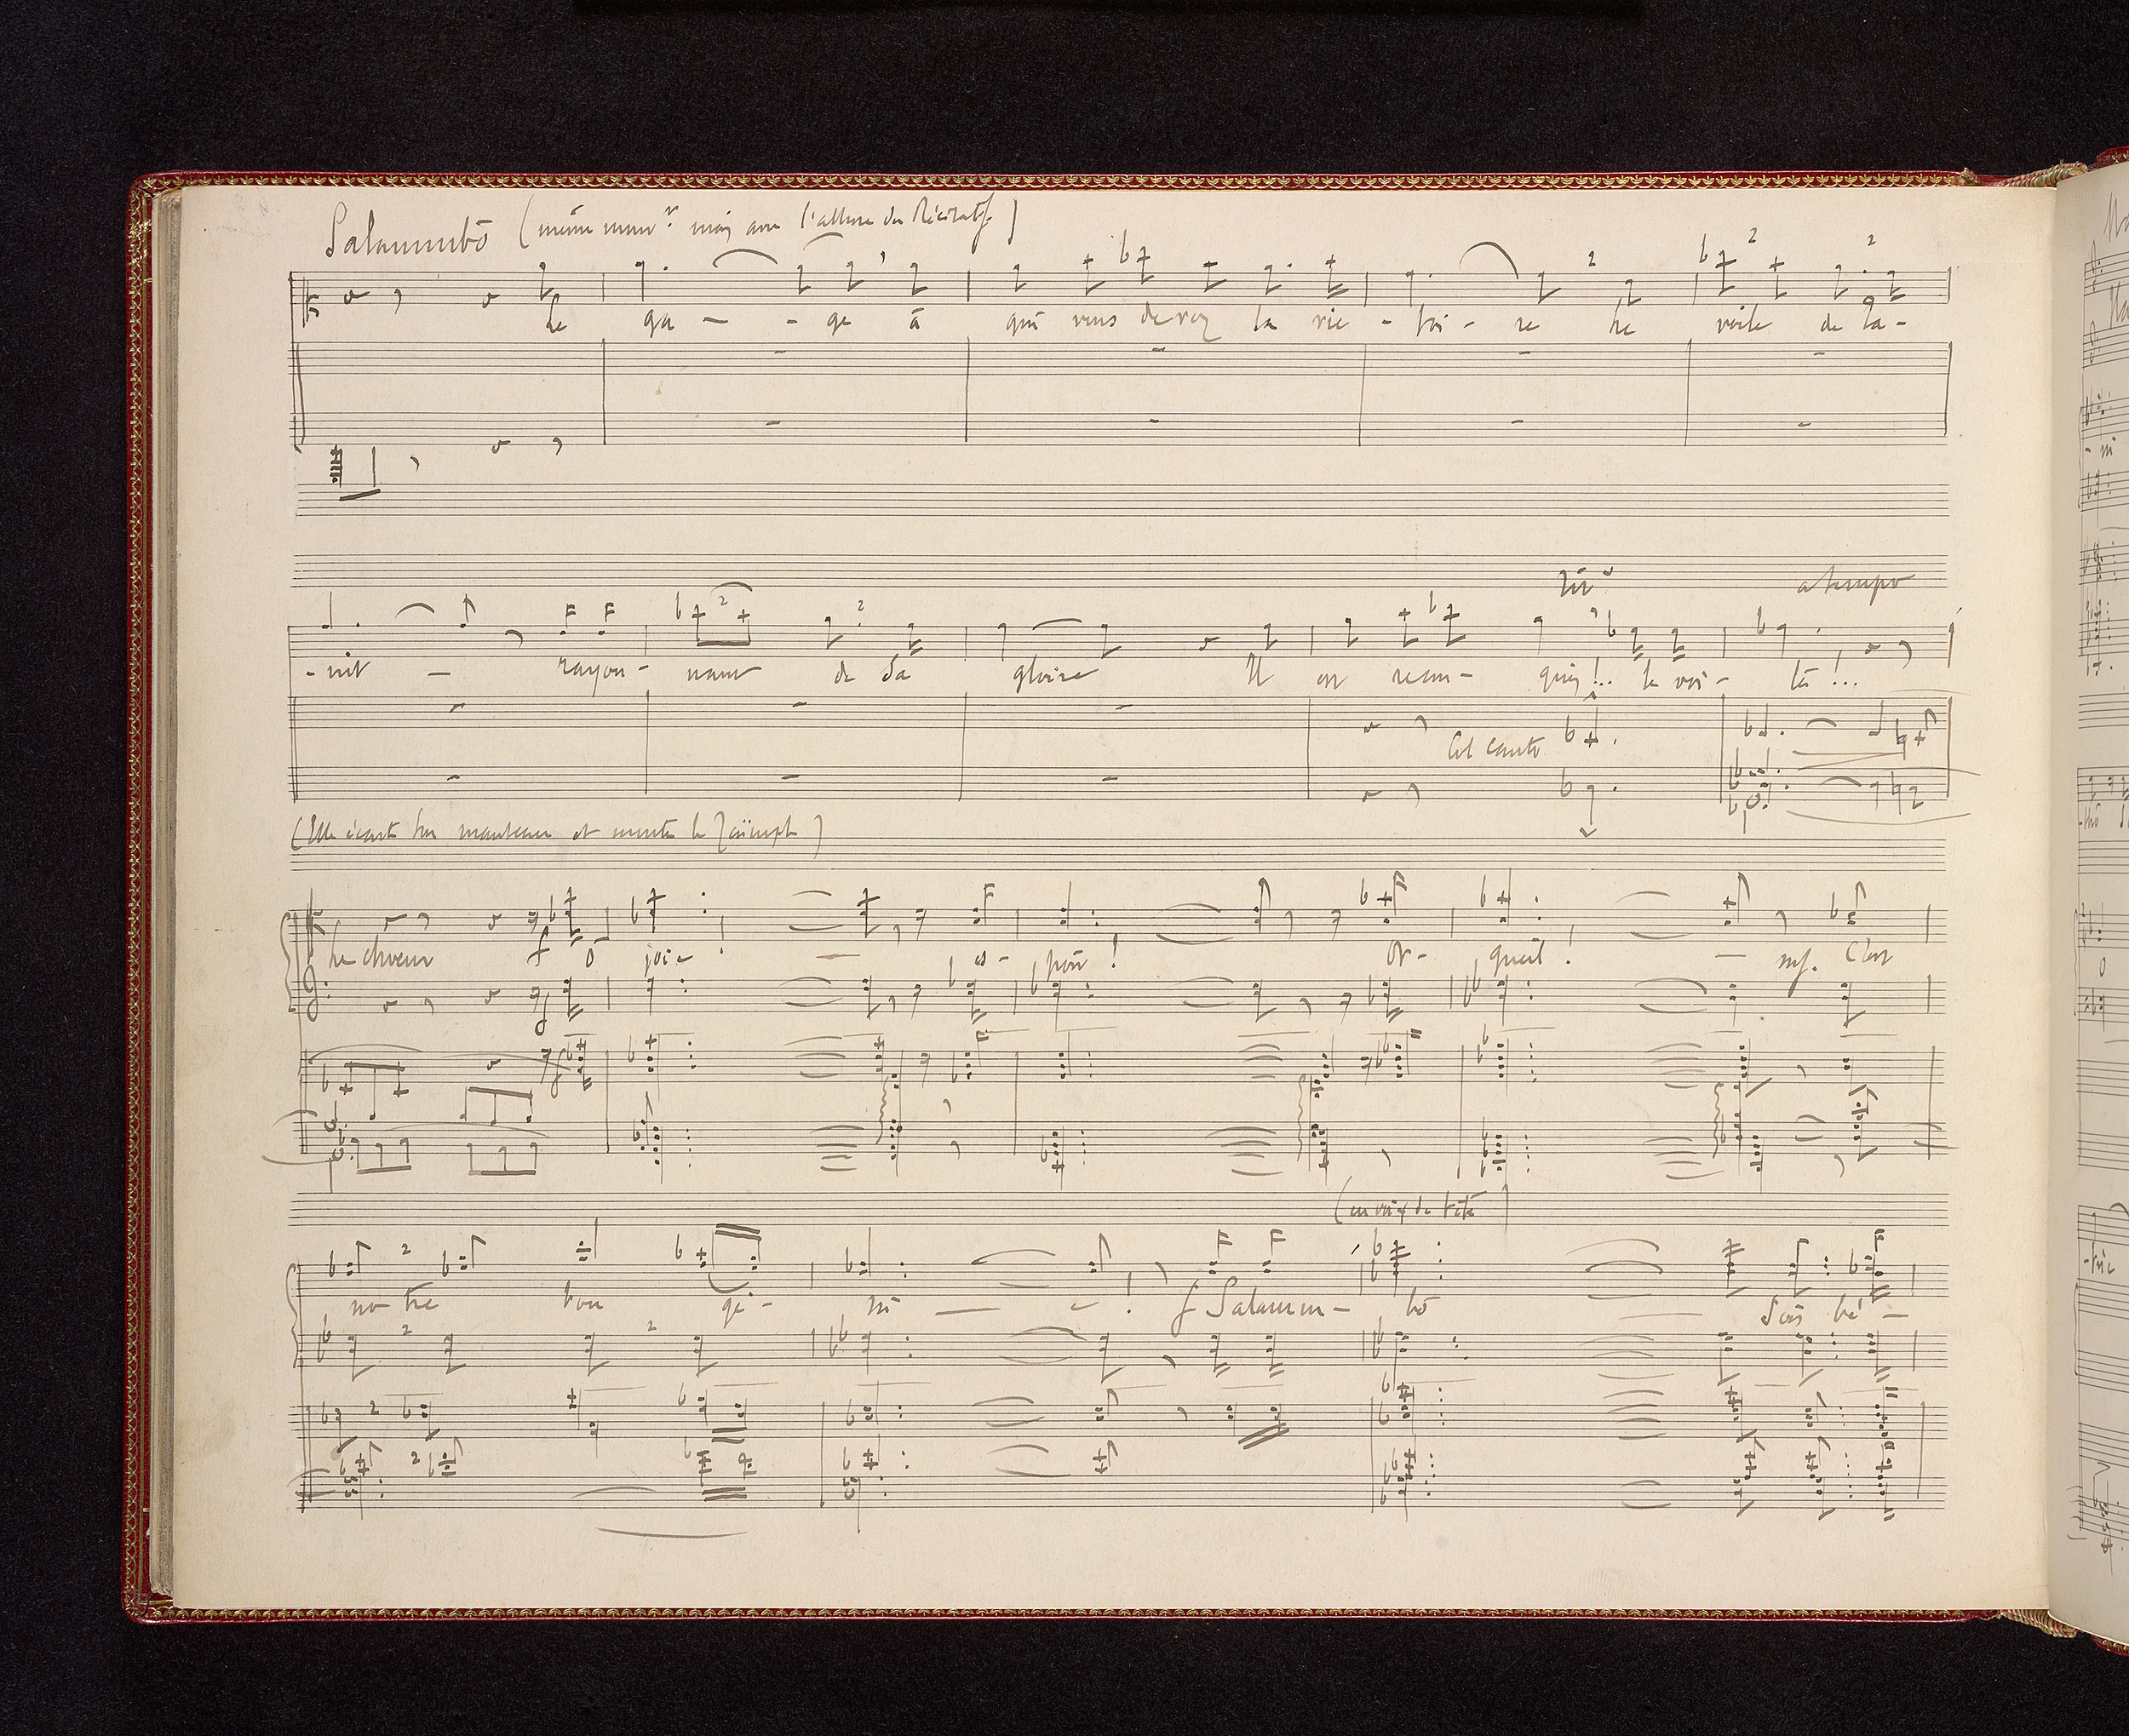 Salammbô (même mouv.t mais avec l'allure du Récitatif)
Le ga - - ge à qui vous devrez la vic - toi - re Le voile de Ta -
Rit a tempo
- nit - rayon - nant de Sa gloire Il est recon - quis!.. le voi - là!...
Col canto
(Elle écarte son manteau et montre le Zaïmph)
Le chœur f O joie! - es - poir! Or - gueil! - mf. C'est
(en voix de tête)
no - tre bon gé - ni - e! f Salamm - bô Sois bé -